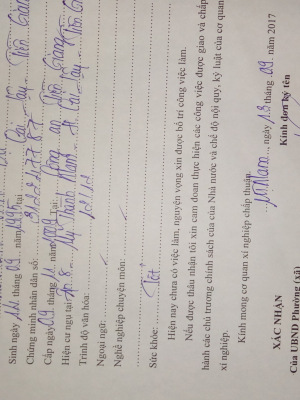 Sinh ngày 11 tháng 09 năm 1995 tại Cai Lậy - Tiền Giang
Chứng minh nhân dân số:
Cấp ngày 09 tháng 11 năm tại: Công an Tiền Giang
Hiện cư ngụ tại: Ấp 8 - Mỹ Thành Nam - H. Cai Lậy - Tiền
Trình độ văn hóa: 12/12
Ngoại ngữ:
Nghề nghiệp chuyên môn:
Sức khỏe: Tốt
Hiện nay chưa có việc làm, nguyện vọng xin được bố trí công việc làm.
Nếu được thâu nhận tôi xin cam đoan thực hiện các công việc được giao và chấp
hành các chủ trương chính sách của của Nhà nước và chế độ nội quy, kỷ luật của cơ quan
xí nghiệp.
Kính mong cơ quan xí nghiệp chấp thuận.
ngày 13 tháng 09 năm 2017
Kính đơn ký tên
XÁC NHẬN
Của UBND Phường (xã)